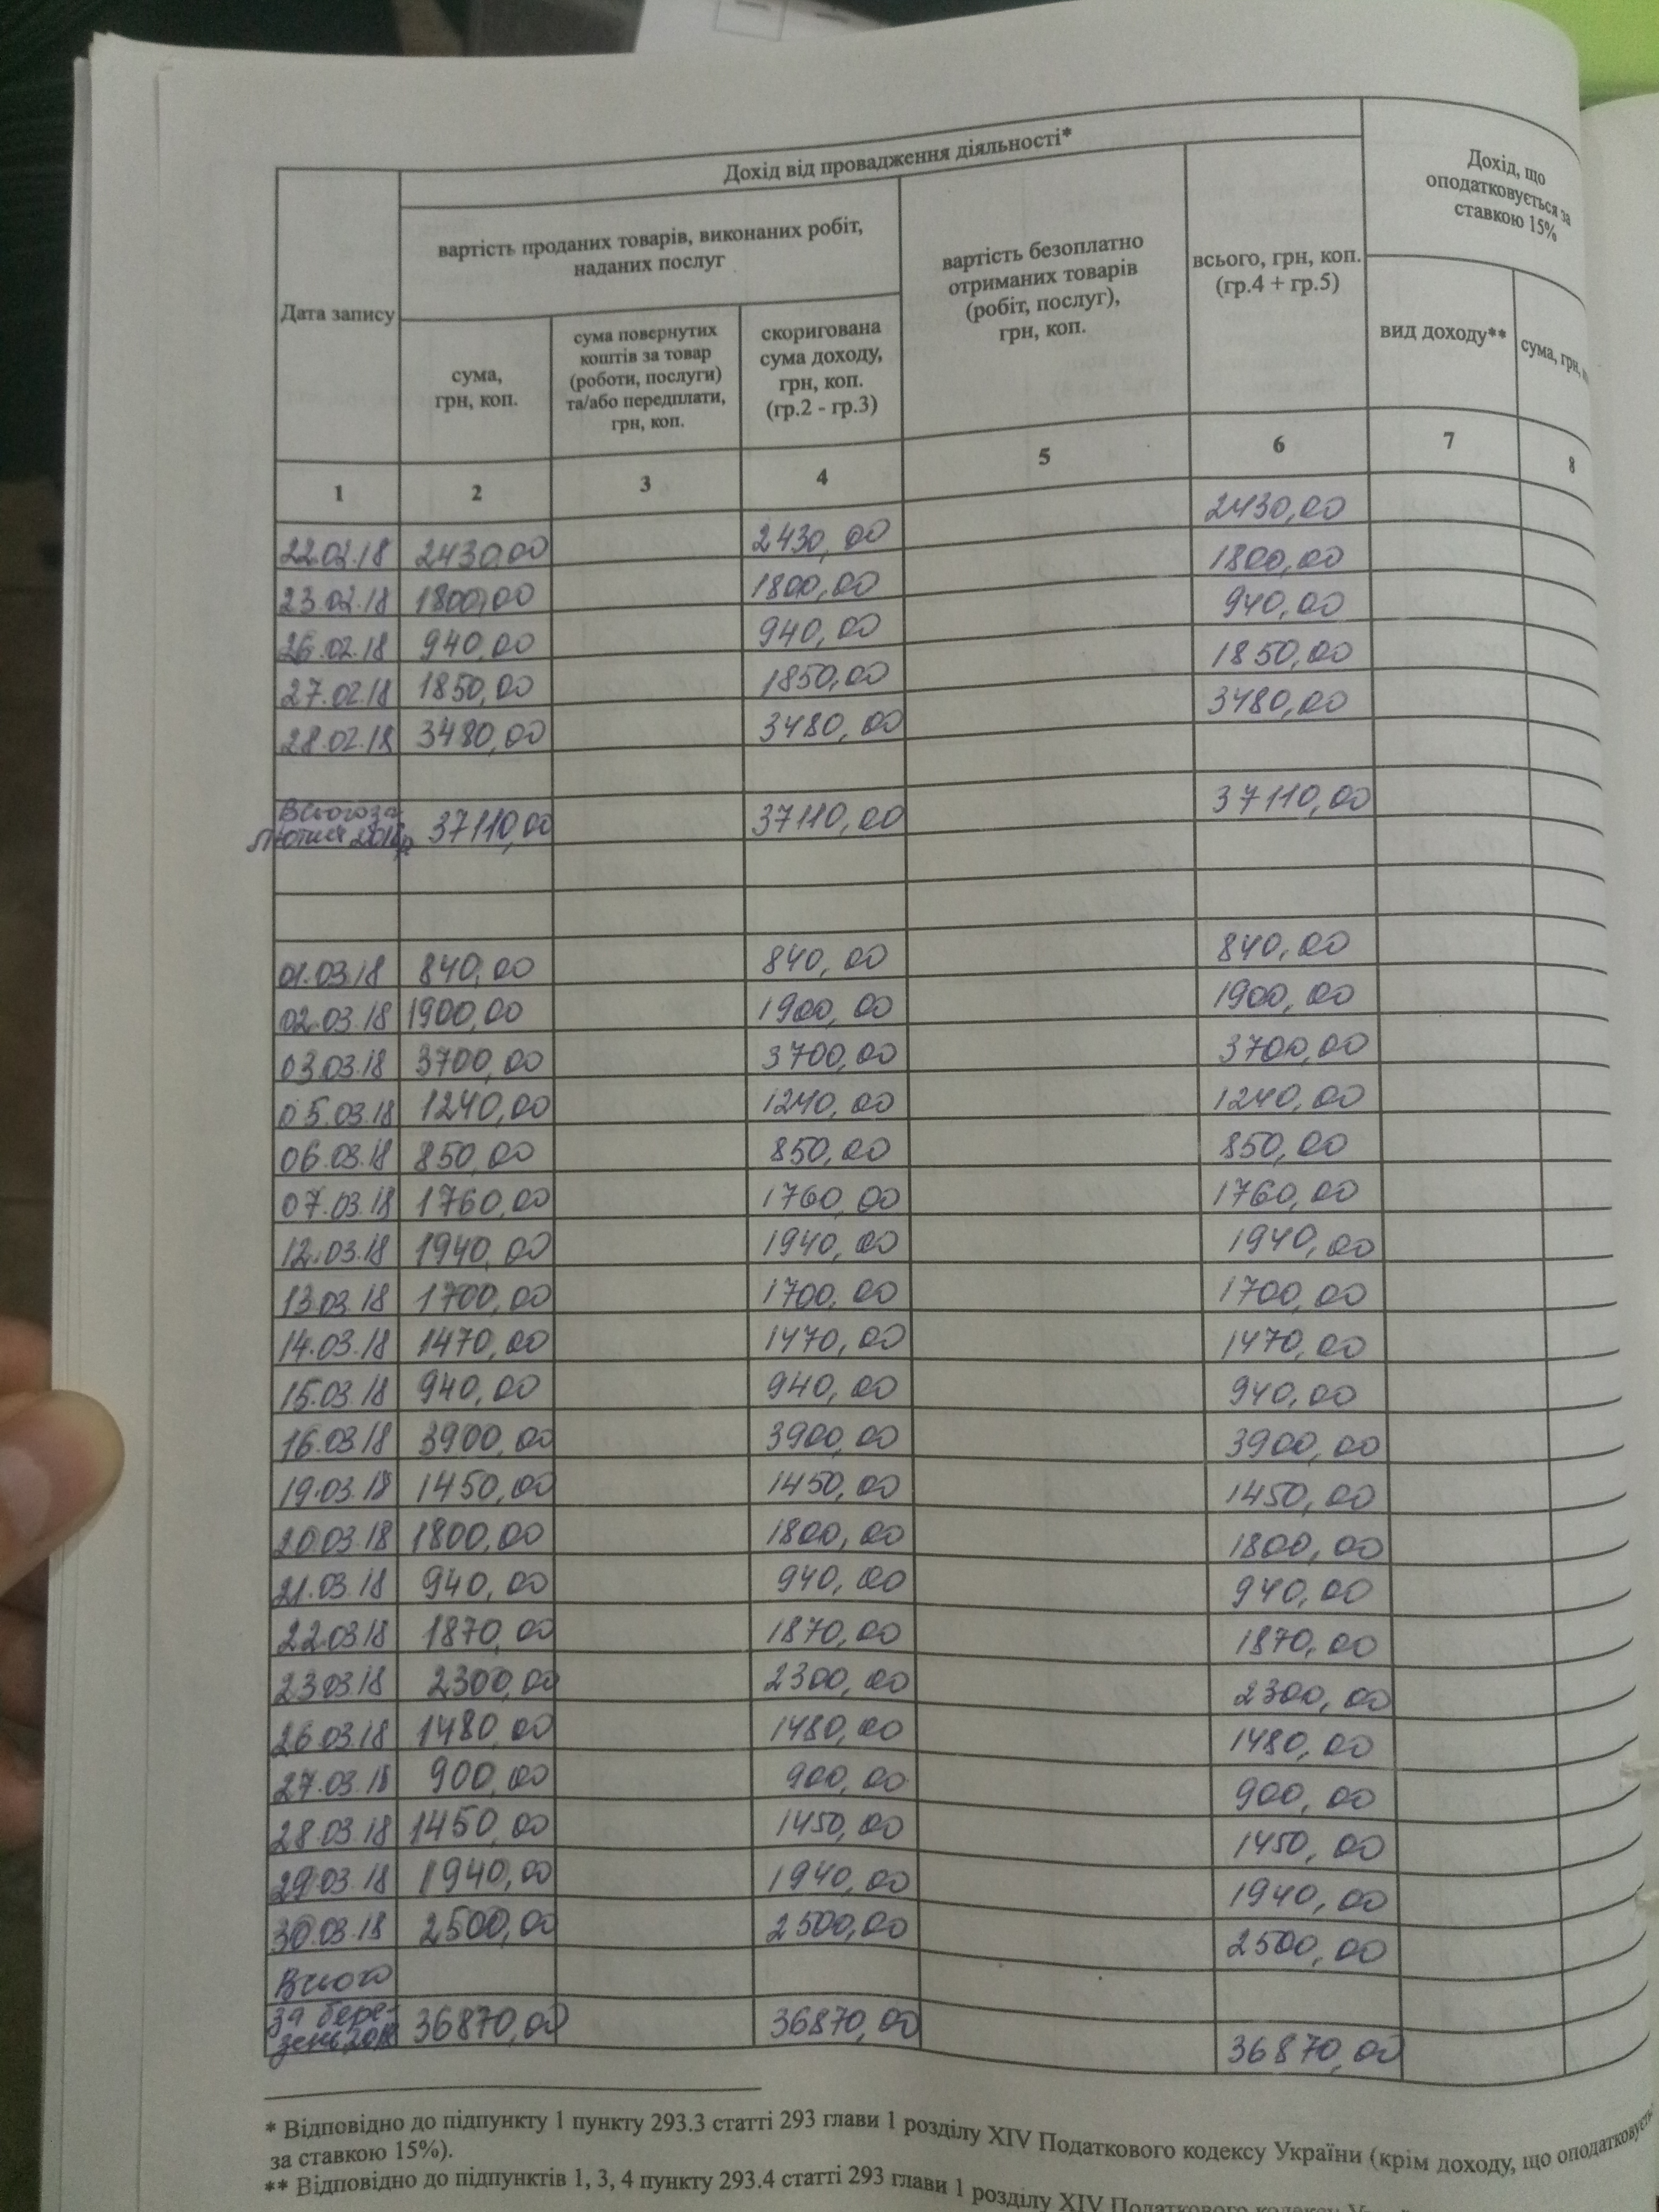 Дохід від провадження діяльності*
Дохід, що
оподатковується за
ставкою 15%
Дата запису
вартість проданих товарів, виконаних робіт,
наданих послуг
вартість безоплатно
отриманих товарів
(робіт, послуг),
грн, коп.
всього, грн, коп.
(гр.4 + гр.5)
сума,
грн, коп.
сума повернутих
коштів за товар
(роботи, послуги)
та/або передплати,
грн, коп.
скоригована
сума доходу,
грн, коп.
(гр.2 - гр.3)
вид доходу**
сума, грн,
1 2 3 4 5 6 7 8
22.02.18 2430,00 2430,00 2430,00
23.02.18 1800,00 1800,00 1800,00
26.02.18 940,00 940,00 940,00
27.02.18 1850,00 1850,00 1850,00
28.02.18 3480,00 3480,00 3480,00
Всього за
лютий 2018р 37110,00 37110,00 37110,00
01.03.18 840,00 840,00 840,00
02.03.18 1900,00 1900,00 1900,00
03.03.18 3700,00 3700,00 3700,00
05.03.18 1240,00 1240,00 1240,00
06.03.18 850,00 850,00 850,00
07.03.18 1760,00 1760,00 1760,00
12.03.18 1940,00 1940,00 1940,00
13.03.18 1700,00 1700,00 1700,00
14.03.18 1470,00 1470,00 1470,00
15.03.18 940,00 940,00 940,00
16.03.18 3900,00 3900,00 3900,00
19.03.18 1450,00 1450,00 1450,00
20.03.18 1800,00 1800,00 1800,00
21.03.18 940,00 940,00 940,00
22.03.18 1870,00 1870,00 1870,00
23.03.18 2300,00 2300,00 2300,00
26.03.18 1480,00 1480,00 1480,00
27.03.18 900,00 900,00 900,00
28.03.18 1450,00 1450,00 1450,00
29.03.18 1940,00 1940,00 1940,00
30.03.18 2500,00 2500,00 2500,00
Всього
за бере-
зень 2018 36870,00 36870,00 36870,00
* Відповідно до підпункту 1 пункту 293.3 статті 293 глави 1 розділу XIV Податкового кодексу України (крім доходу, що оподатковується
за ставкою 15%).
** Відповідно до підпунктів 1, 3, 4 пункту 293.4 статті 293 глави 1 розділу XIV Податкового кодексу